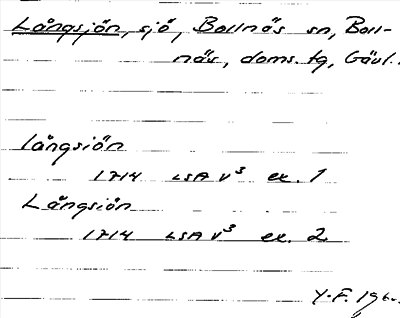 Långsjön, sjö, Bollnäs sn, Boll-
näs, doms. tg, Gävl.
långsiön
1714 LSA V³ ex. 1
Långsiön
1714 LSA V³ ex. 2
Y.F. 196